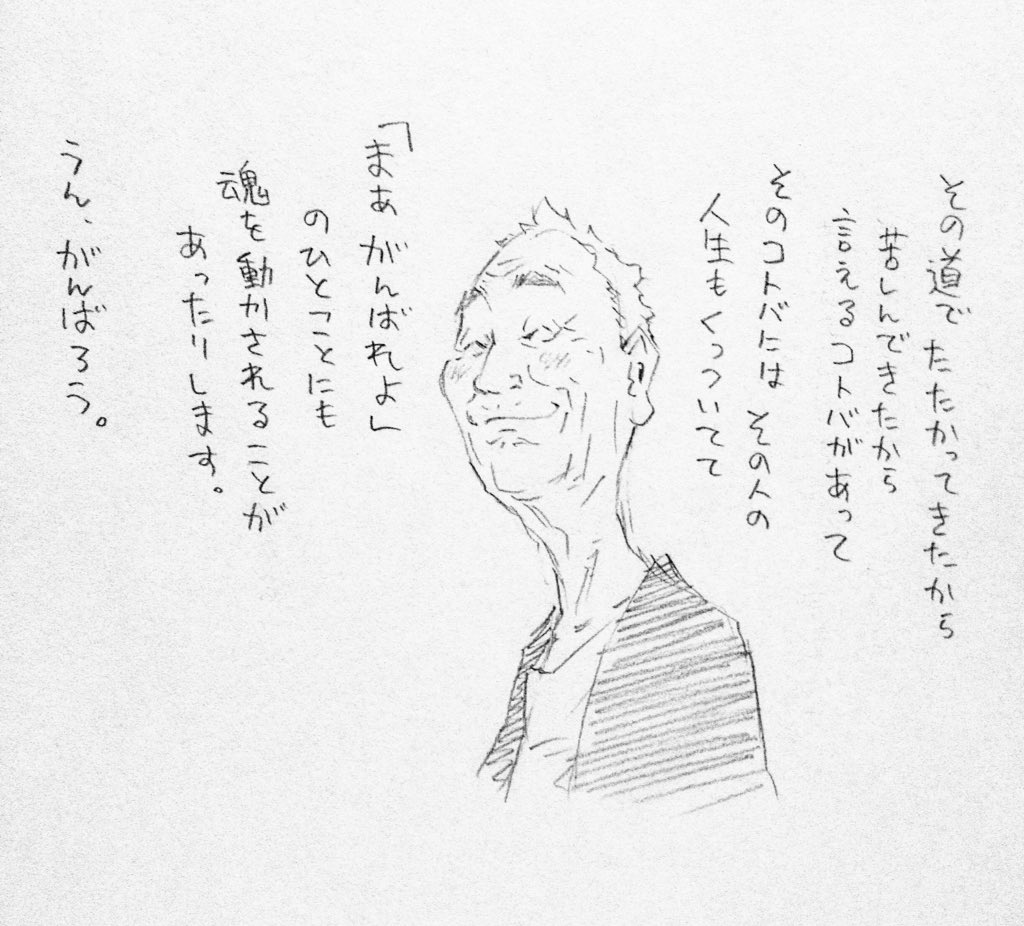 その道でたたかってきたから
苦しんできたから
言えるコトバがあって
そのコトバには その人の
人生もくっついてて
「まあ がんばれよ」
のひとことにも
魂を動かされることが
あったりします。
うん、がんばろう。